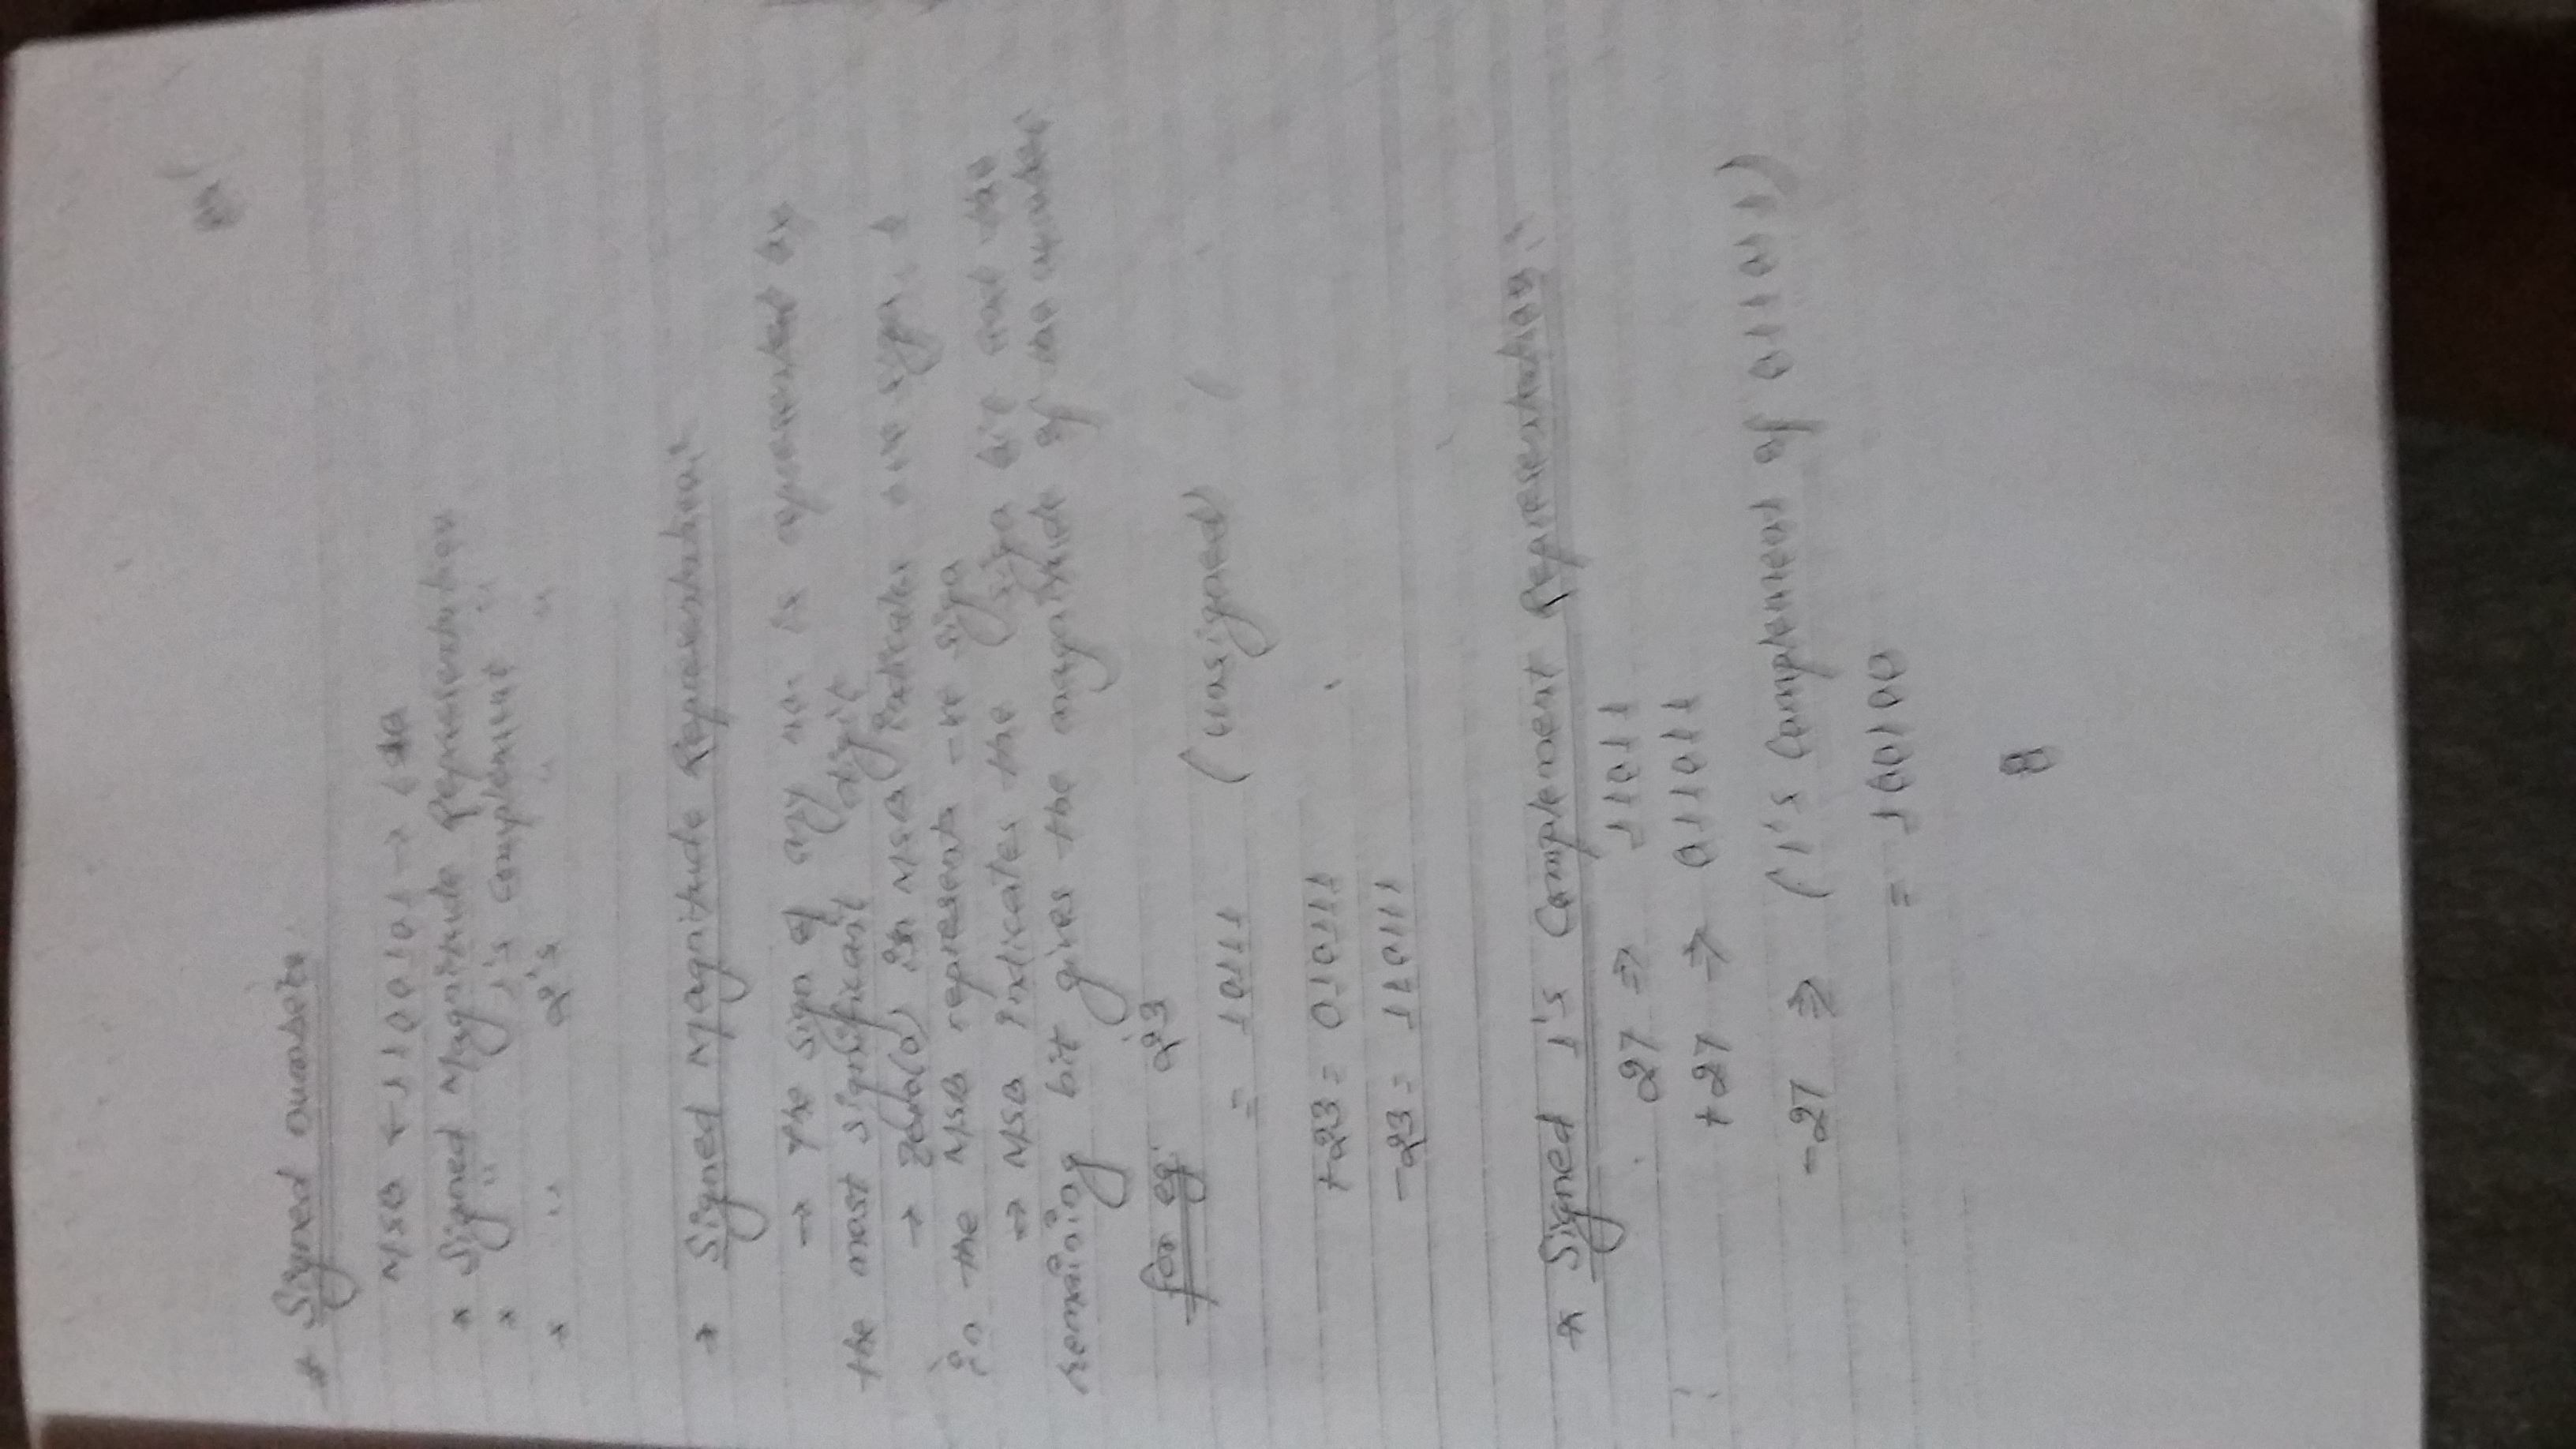 * Signed numbers
MSB ← 1100101 → LSB
* Signed Magnitude Representation
* " 1's Complement "
* " 2's " "
* Signed Magnitude Representation:
→ The sign of any no. is represented by
the most significant digit
→ Zero(0) in MSB indicates +ve sign, 1
in the MSB represents -ve sign
→ MSB indicates the sign bit and the
remaining bit gives the magnitude of the number
for eg: 23
= 10111 (unsigned)
+23 = 010111
-23 = 110111
* Signed 1's Complement Representation:
27 ⇒ 11011
+27 ⇒ 011011
-27 ⇒ (1's Complement of 011011)
= 100100
8